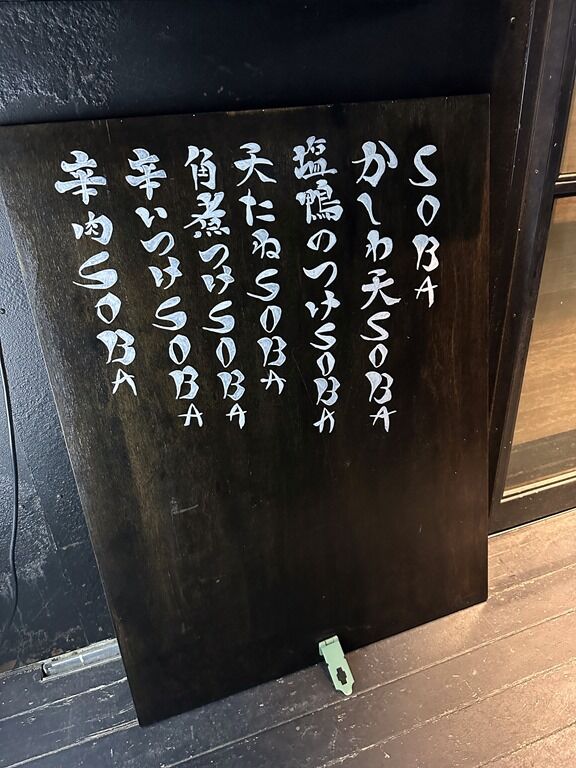 SOBA
かしわ天SOBA
塩鴨のつけSOBA
天たねSOBA
角煮つけSOBA
辛いつけSOBA
辛肉SOBA